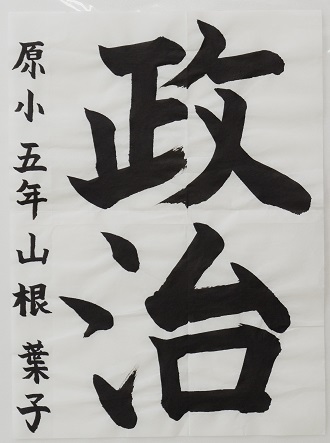 政治
原小五年山根葉子